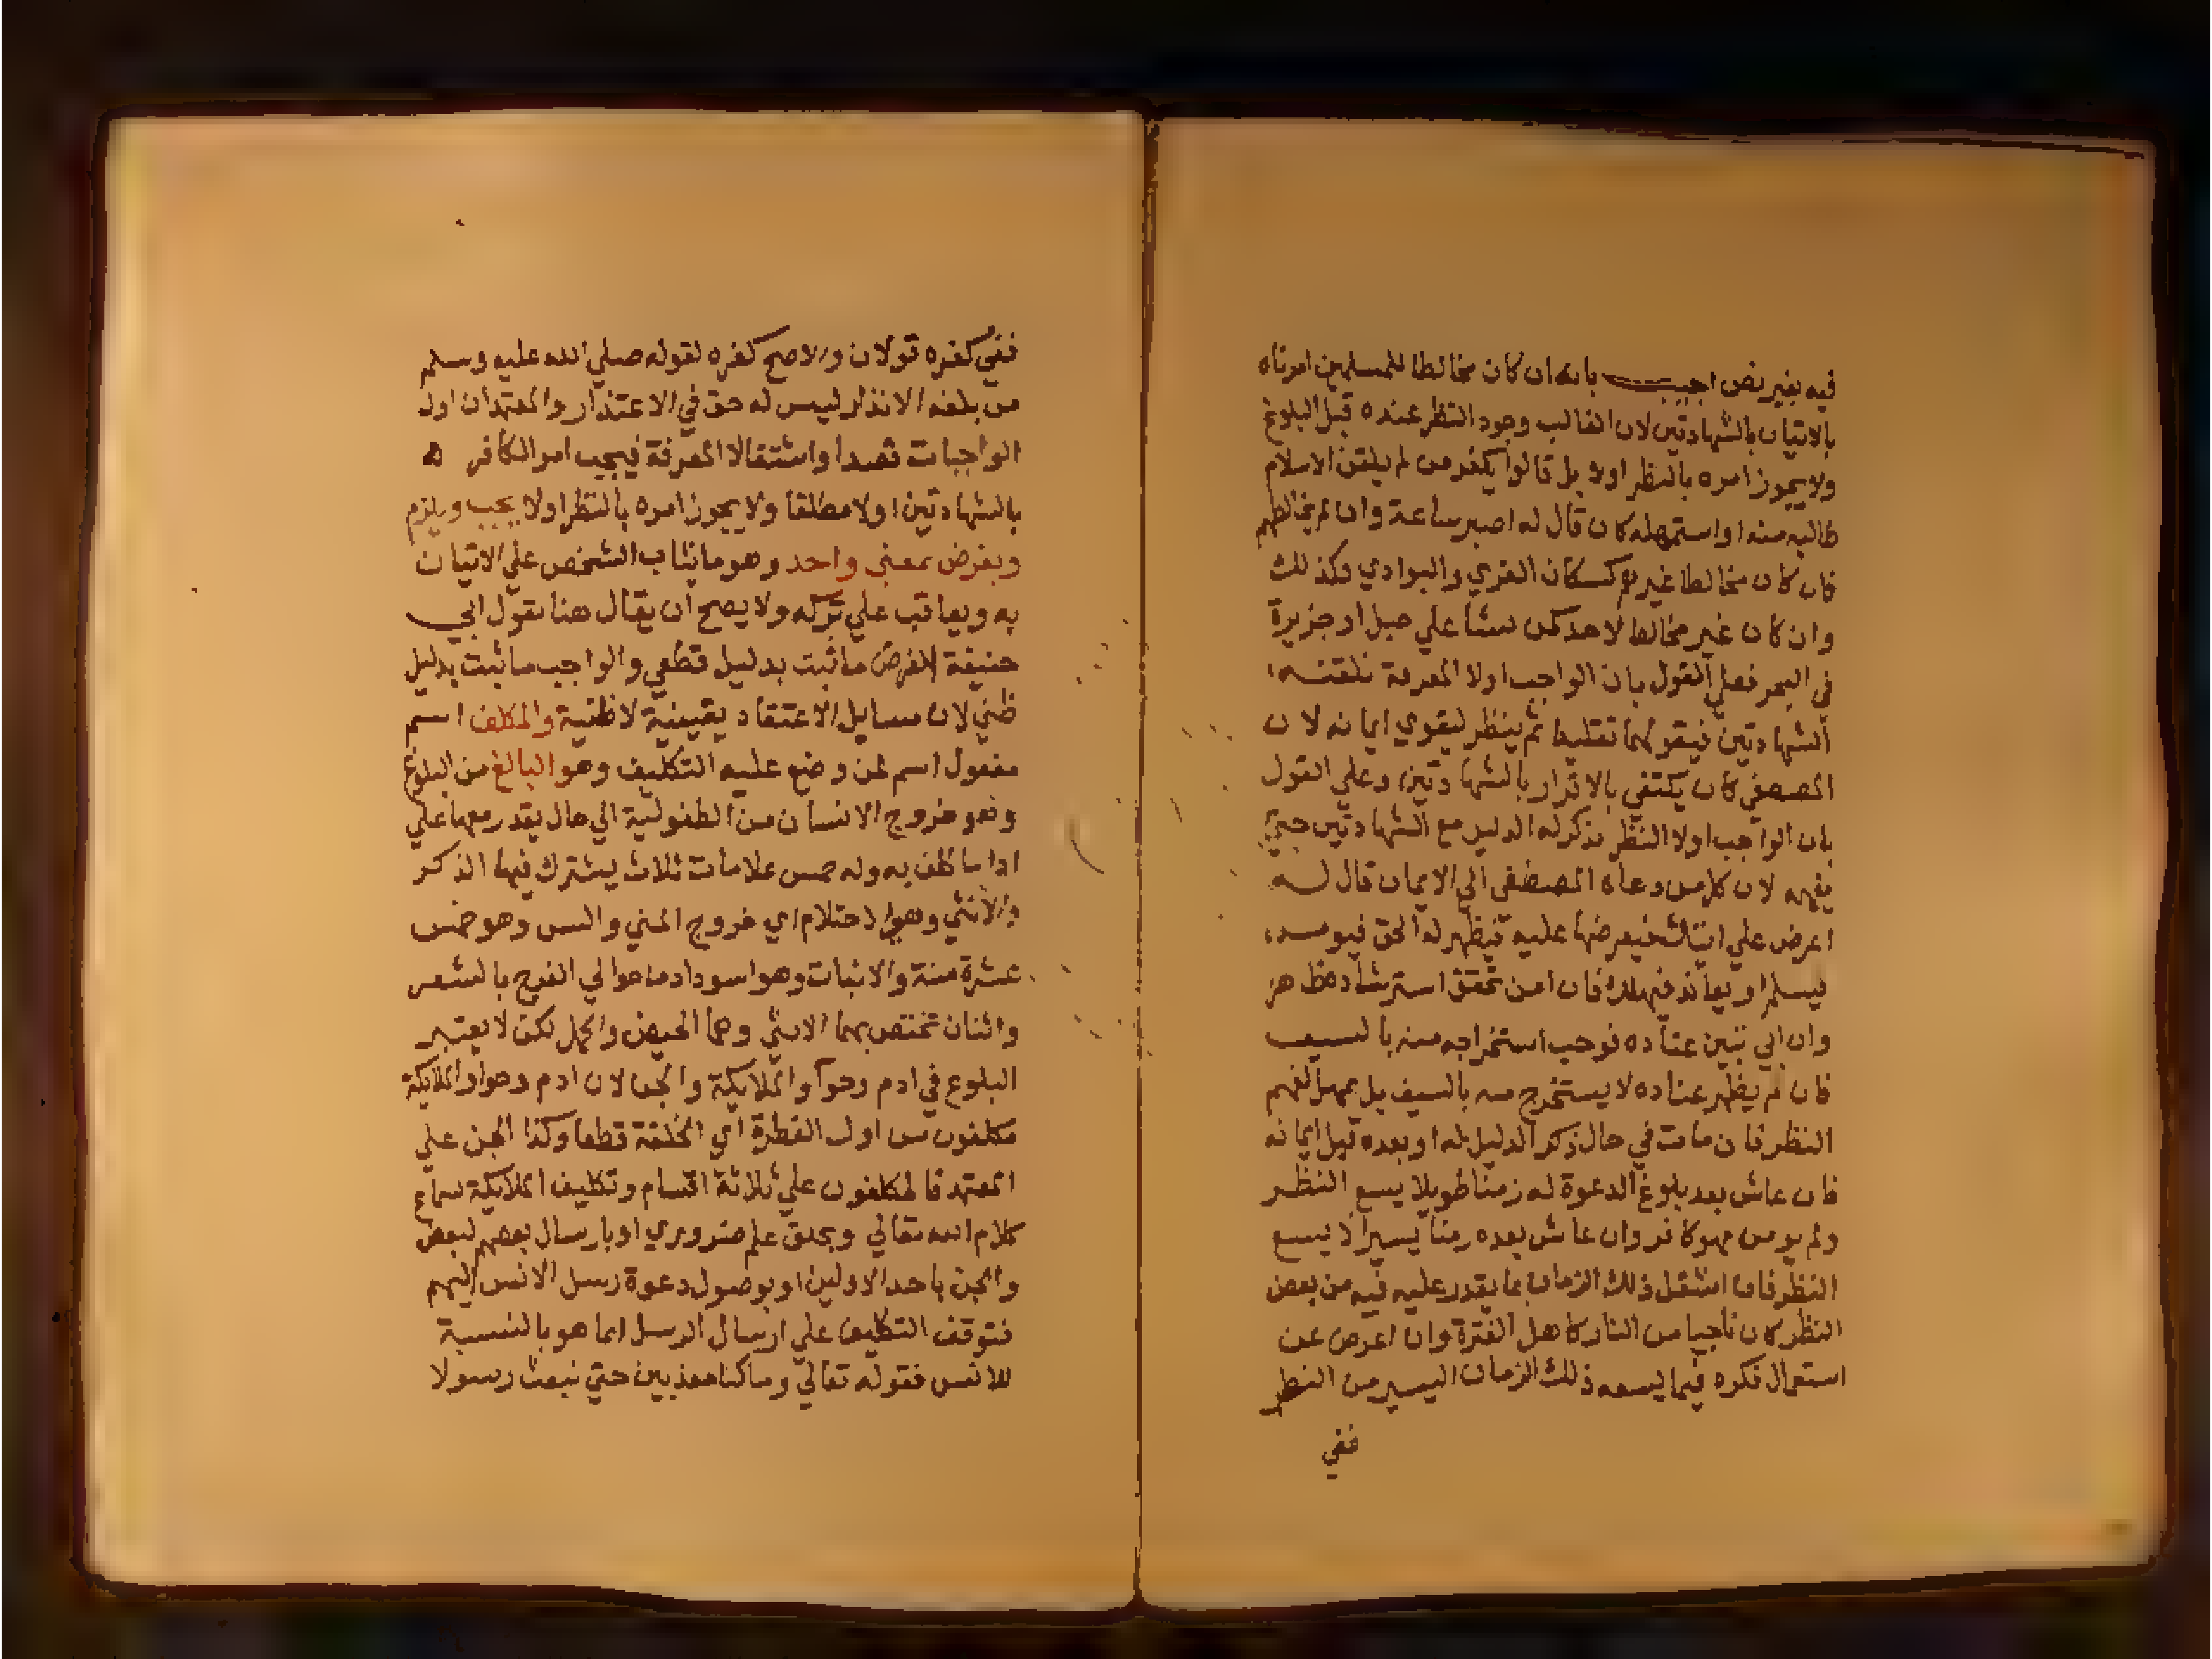 فيه بغير نص اجيب بانه ان كان مخالطا للمسلمين امرناه
بالاتيان بالشهادتين لان الغالب وجود النظر عنده قبل البلوغ
ولا يجوز امره بالنظر اولا بل قالوا يكفر من لم يلقن الاسلام
طالبه منه او استمهله كان قال له اصبر ساعة وان لم يخالطهم
فان كان مخالطا غيرهم كسكان القري والبوادي وكذلك
وان كان غير مخالط لاحد كمن نشا علي جبل او جزيرة
في البحر فعلي القول بان الواجب اولا المعرفة نلقنه
الشهادتين فيقولهما تقليدا ثم ينظر ليقوي ايمانه لان
المصطفي كان يكتفي بالاقرار بالشهادتين وعلي القول
بان الواجب اولا النظر نذكر له الدليل مع الشهادتين حتي
يفهمه لان كل من دعاه المصطفي الي الايمان قال له
اعرض علي فيعرضها عليه فيظهر له الحق فيومن
فيسلم او يعاند فيهلك فان امن تحقق استرشاده
وان ابي تبين عناده فوجب استخراجه منه بالسيف
فان لم يظهر عناده لا يستخرج منه بالسيف بل يمهل لفهم
النظر فان مات في حال ذكر الدليل له او بعده قبل ايمانه
فان عاش بعد بلوغ الدعوة له زمنا طويلا يسع النظر
ولم يومن فهو كافر وان عاش بعده زمنا يسيرا لا يسع
النظر فاما اشتغل ذلك الزمان بما يقدر عليه فيه من بعض
النظر كان ناجيا من النار كاهل الفترة وان اعرض عن
استعمال فكره فيما يسعه ذلك الزمان اليسير من النظر
ففي
ففي كفره قولان والاصح كفره لقوله صلي الله عليه وسلم
من بلغه الانذار ليس له حق في الاعتذار والمعتمد ان اول
الواجبات قصدا واشتغالا المعرفة فيجب امر الكافر
بالشهادتين اولا مطلقا ولا يجوز امره بالنظر اولا يجب ويلزم
ويفرض بمعني واحد وهو ما يثاب الشخص علي الاتيان
به ويعاقب علي تركه ولا يصح ان يقال هنا بقول ابي
حنيفة الفرض ما ثبت بدليل قطعي والواجب ما ثبت بدليل
ظني لان مسايل الاعتقاد يقينية لا ظنية والمكلف اسم
مفعول اسم لمن وضع عليه التكليف وهو البالغ من البلوغ
وهو خروج الانسان من الطفولية الي حال يقدر معها علي
اداء ما كلف به وله خمس علامات ثلاث يشترك فيها الذكر
والانثي وهو الاحتلام اي خروج المني والسن وهو خمس
عشرة سنة والانبات وهو اسوداد ما حوالي الفرج بالشعر
واثنان تختص بهما الانثي وهما الحيض والحمل لكن لا يعتبر
البلوغ في ادم وحوا والملايكة والجن لان ادم وحوا والملايكة
مكلفون من اول الفطرة اي الخلقة قطعا وكذا الجن علي
المعتمد فالمكلفون علي ثلاثة اقسام وتكليف الملايكة بسماع
كلام الله تعالي وبخلق علم ضروري او بارسال بعضهم لبعض
والجن باحد الاولين او بوصول دعوة رسل الانس اليهم
فتوقف التكليف علي ارسال الرسل انما هو بالنسبة
للانس فقوله تعالي وما كنا معذبين حتي نبعث رسولا